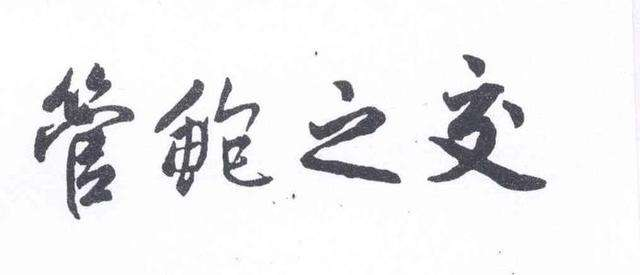 管鲍之交